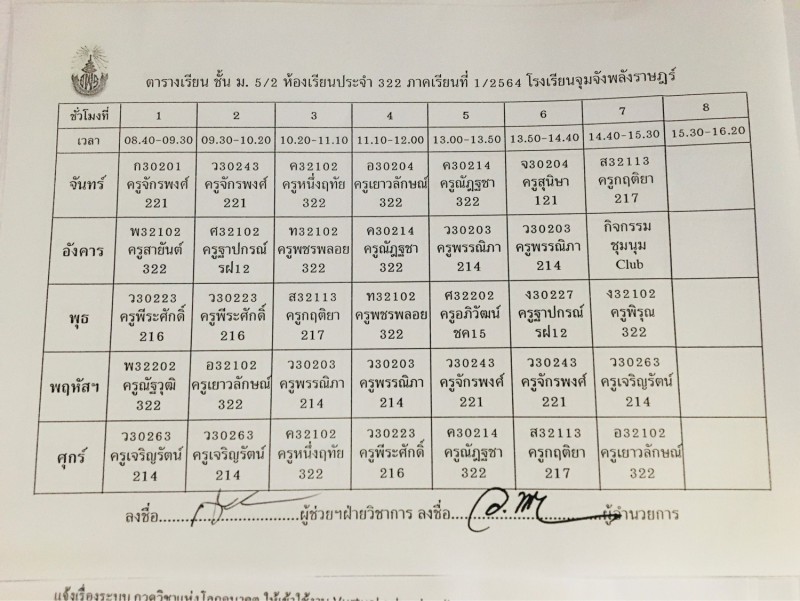 ตารางเรียน ชั้น ม. 5/2 ห้องเรียนประจำ 322 ภาคเรียนที่ 1/2564 โรงเรียนจุมจังพลังราษฎร์
ชั่วโมงที่ 1 2 3 4 5 6 7 8
เวลา 08.40-09.30 09.30-10.20 10.20-11.10 11.10-12.00 13.00-13.50 13.50-14.40 14.40-15.30 15.30-16.20
ก30201 ว30243 ค32102 อ30204 ค30214 จ30204 ส32113
จันทร์ ครูจักรพงศ์ ครูจักรพงศ์ ครูหนึ่งฤทัย ครูเยาวลักษณ์ ครูณัฎฐชา ครูสุนิษา ครูกฤติยา
221 221 322 322 322 121 217
พ32102 ศ32102 ท32102 ค30214 ว30203 ว30203 กิจกรรม
อังคาร ครูสายันต์ ครูฐาปกรณ์ ครูพชรพลอย ครูณัฎฐชา ครูพรรณิภา ครูพรรณิภา ชุมนุม
322 รฝ12 322 322 214 214 Club
ว30223 ว30223 ส32113 ท32102 ศ32202 ง30227 ง32102
พุธ ครูพีระศักดิ์ ครูพีระศักดิ์ ครูกฤติยา ครูพชรพลอย ครูอภิวัฒน์ ครูฐาปกรณ์ ครูพิรุณ
216 216 217 322 ชค15 รฝ12 322
พ32202 อ32102 ว30203 ว30203 ว30243 ว30243 ว30263
พฤหัสฯ ครูณัฐวุฒิ ครูเยาวลักษณ์ ครูพรรณิภา ครูพรรณิภา ครูจักรพงศ์ ครูจักรพงศ์ ครูเจริญรัตน์
322 322 214 214 221 221 214
ว30263 ว30263 ค32102 ว30223 ค30214 ส32113 อ32102
ศุกร์ ครูเจริญรัตน์ ครูเจริญรัตน์ ครูหนึ่งฤทัย ครูพีระศักดิ์ ครูณัฎฐชา ครูกฤติยา ครูเยาวลักษณ์
214 214 322 216 322 217 322
ลงชื่อ..............................ผู้ช่วยฯฝ่ายวิชาการ ลงชื่อ..............................ผู้อำนวยการ